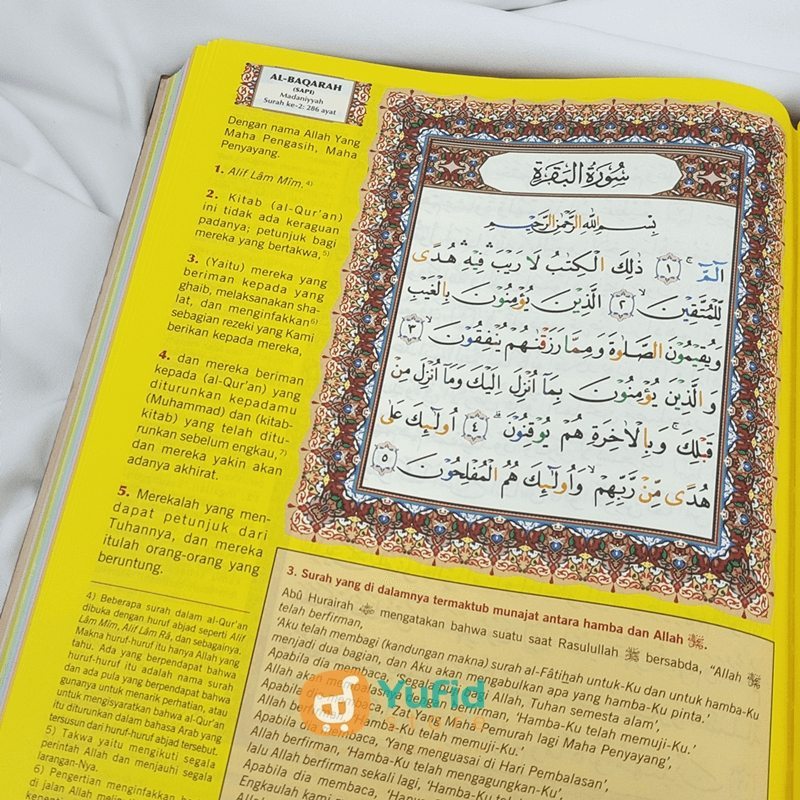 AL-BAQARAH
(SAPI)
Madaniyyah
Surah ke-2: 286 ayat
Dengan nama Allah Yang
Maha Pengasih, Maha
Penyayang.
1. Alif Lâm Mîm.4)
2. Kitab (al-Qur'an)
ini tidak ada keraguan
padanya; petunjuk bagi
mereka yang bertakwa,5)
3. (Yaitu) mereka yang
beriman kepada yang
ghaib, melaksanakan sha-
lat, dan menginfakkan6)
sebagian rezeki yang Kami
berikan kepada mereka,
4. dan mereka beriman
kepada (al-Qur'an) yang
diturunkan kepadamu
(Muhammad) dan (kitab-
kitab) yang telah ditu-
runkan sebelum engkau,7)
dan mereka yakin akan
adanya akhirat.
5. Merekalah yang men-
dapat petunjuk dari
Tuhannya, dan mereka
itulah orang-orang yang
beruntung.
4) Beberapa surah dalam al-Qur'an
dibuka dengan huruf abjad seperti Alif
Lâm Mîm, Alif Lâm Râ, dan sebagainya.
Makna huruf-huruf itu hanya Allah yang
tahu. Ada yang berpendapat bahwa
huruf-huruf itu adalah nama surah
dan ada pula yang berpendapat bahwa
gunanya untuk menarik perhatian, atau
untuk mengisyaratkan bahwa al-Qur'an
itu diturunkan dalam bahasa Arab yang
tersusun dari huruf-huruf abjad tersebut.
5) Takwa yaitu mengikuti segala
perintah Allah dan menjauhi segala
larangan-Nya.
6) Pengertian menginfakkan
di jalan Allah
سُورَةُ الْبَقَرَةِ
بِسْمِ اللهِ الرَّحْمٰنِ الرَّحِيْمِ
الۤمّۤ ۚ ﴿١﴾ ذٰلِكَ الْكِتٰبُ لَا رَيْبَ ۛ فِيْهِ ۛ هُدًى
لِّلْمُتَّقِيْنَ ۙ ﴿٢﴾ الَّذِيْنَ يُؤْمِنُوْنَ بِالْغَيْبِ
وَيُقِيْمُوْنَ الصَّلٰوةَ وَمِمَّا رَزَقْنٰهُمْ يُنْفِقُوْنَ ۙ ﴿٣﴾
وَالَّذِيْنَ يُؤْمِنُوْنَ بِمَآ اُنْزِلَ اِلَيْكَ وَمَآ اُنْزِلَ مِنْ
قَبْلِكَ ۚ وَبِالْاٰخِرَةِ هُمْ يُوْقِنُوْنَ ۗ ﴿٤﴾ اُولٰۤىِٕكَ عَلٰى
هُدًى مِّنْ رَّبِّهِمْ ۙ وَاُولٰۤىِٕكَ هُمُ الْمُفْلِحُوْنَ ﴿٥﴾
3. Surah yang di dalamnya termaktub munajat antara hamba dan Allah ﷻ.
Abû Hurairah mengatakan bahwa suatu saat Rasulullah ﷺ bersabda, “Allah ﷻ
telah berfirman,
‘Aku telah membagi (kandungan makna) surah al-Fâtihah untuk-Ku dan untuk hamba-Ku
menjadi dua bagian, dan Aku akan mengabulkan apa yang hamba-Ku pinta.’
Apabila dia membaca, ‘Segala puji bagi Allah, Tuhan semesta alam’,
Allah akan membalas, ‘Hamba-Ku telah memuji-Ku.’
Apabila dia membaca, ‘Zat Yang Maha Pemurah lagi Maha Penyayang’,
Allah berfirman, ‘Hamba-Ku telah memuji-Ku.’
Apabila dia membaca, ‘Yang menguasai di Hari Pembalasan’,
Allah berfirman, ‘Hamba-Ku telah mengagungkan-Ku’,
lalu Allah berfirman sekali lagi, ‘Hamba-Ku
Apabila dia membaca,
Engkaulah kami
Yufid